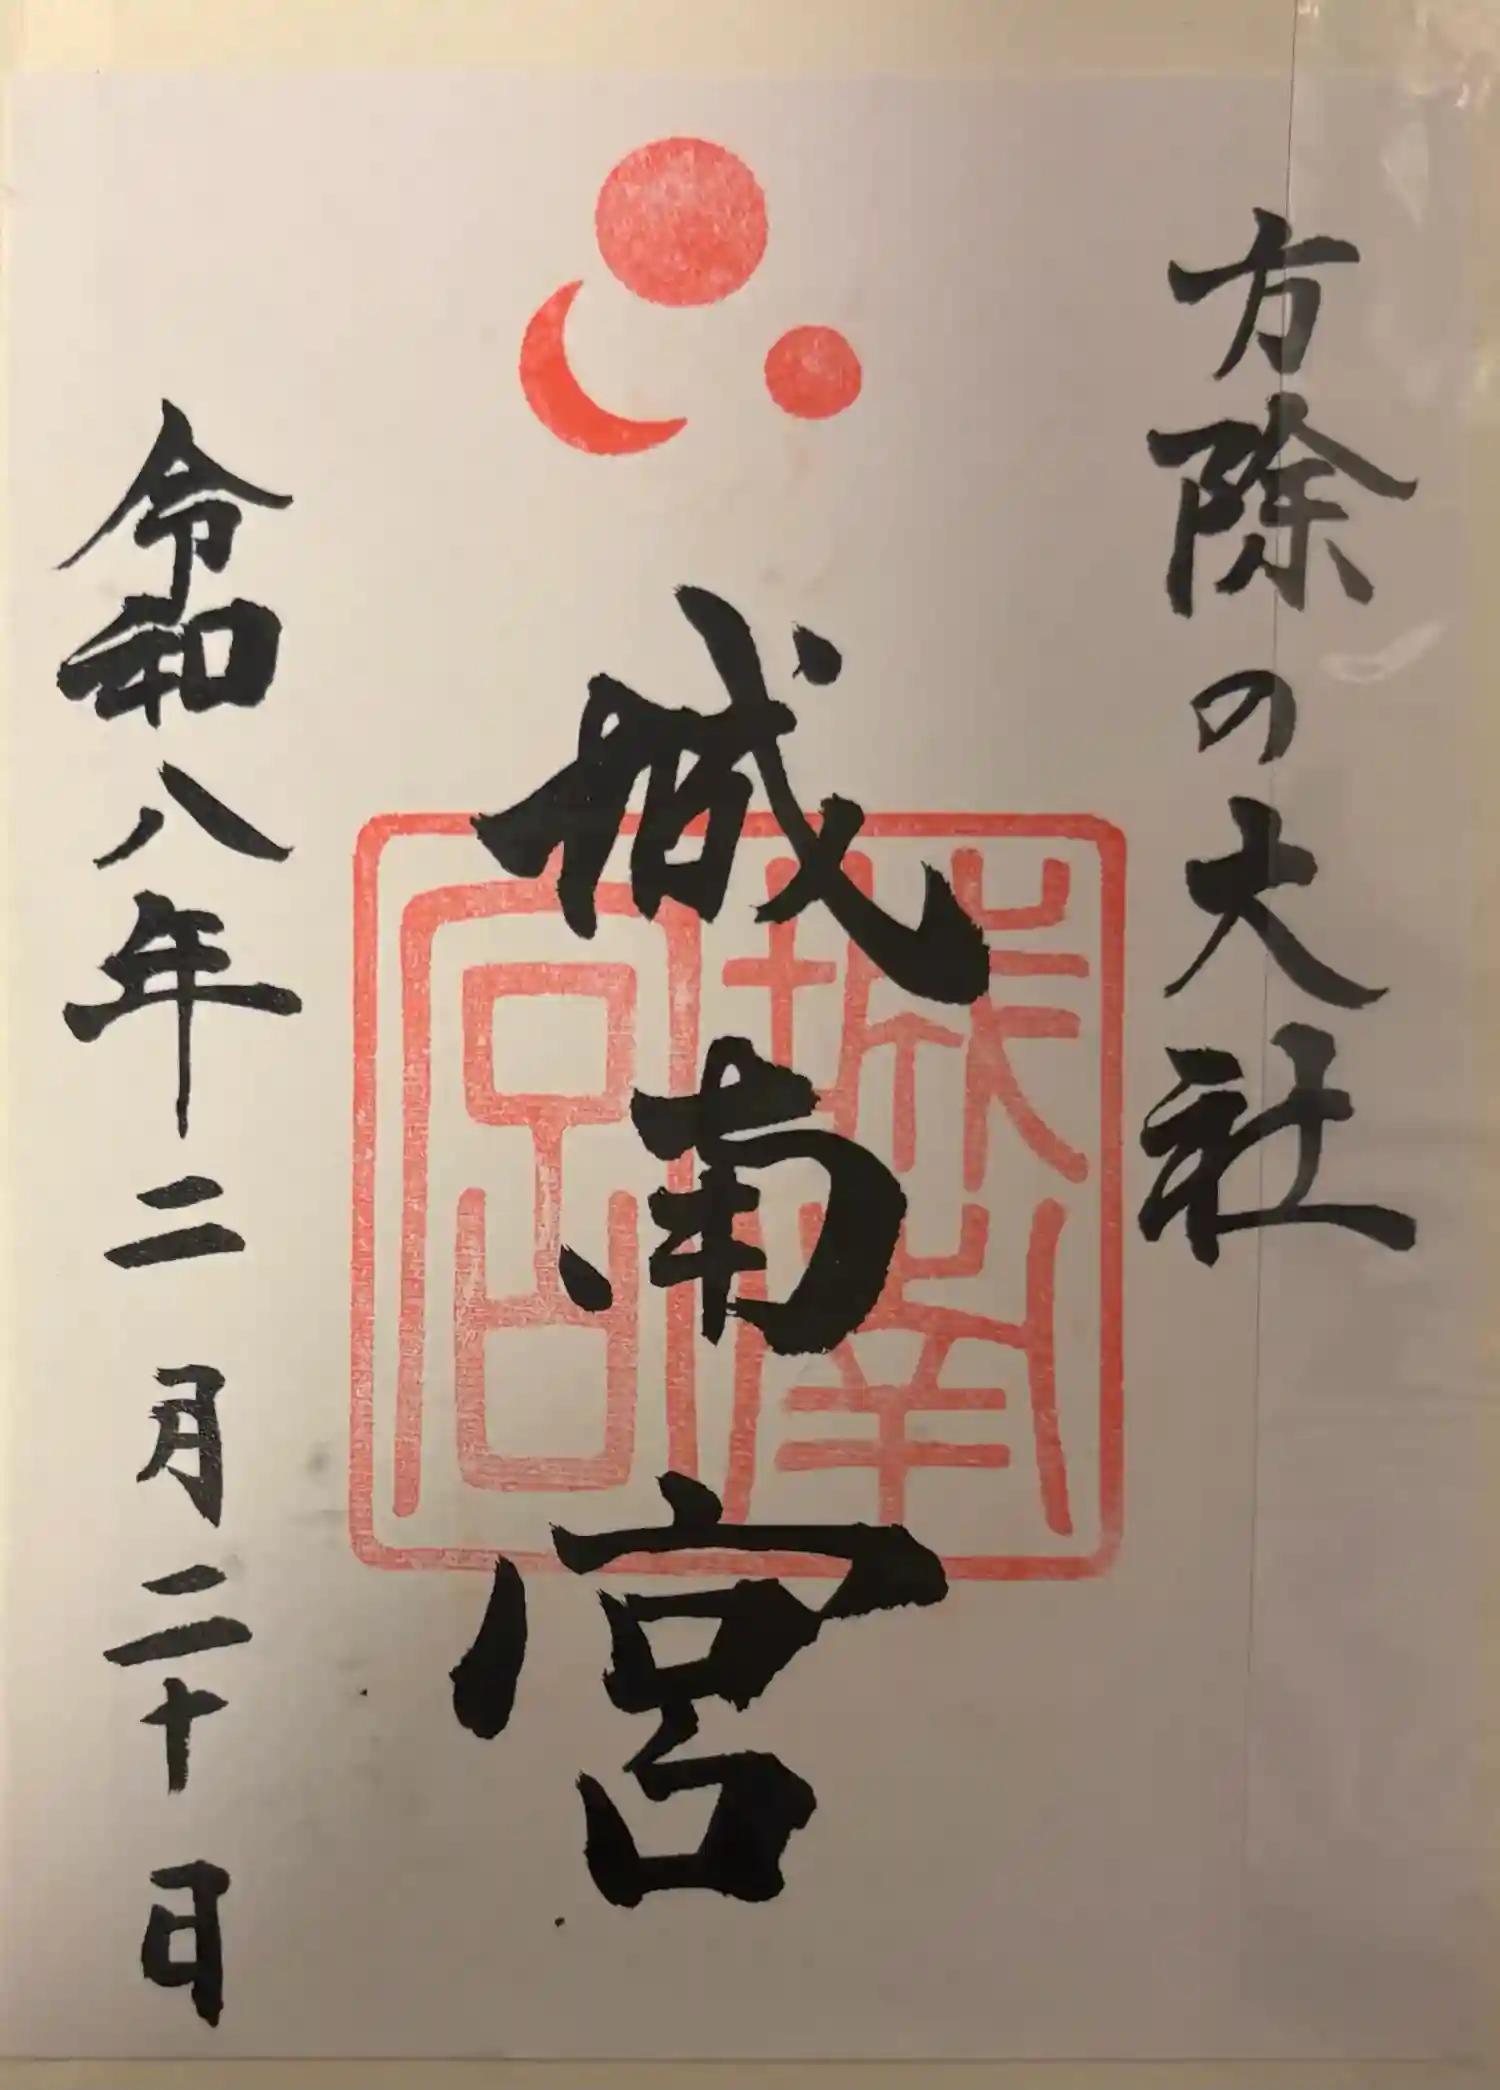 方除の大社
城南宮
城南宮
令和八年二月二十日